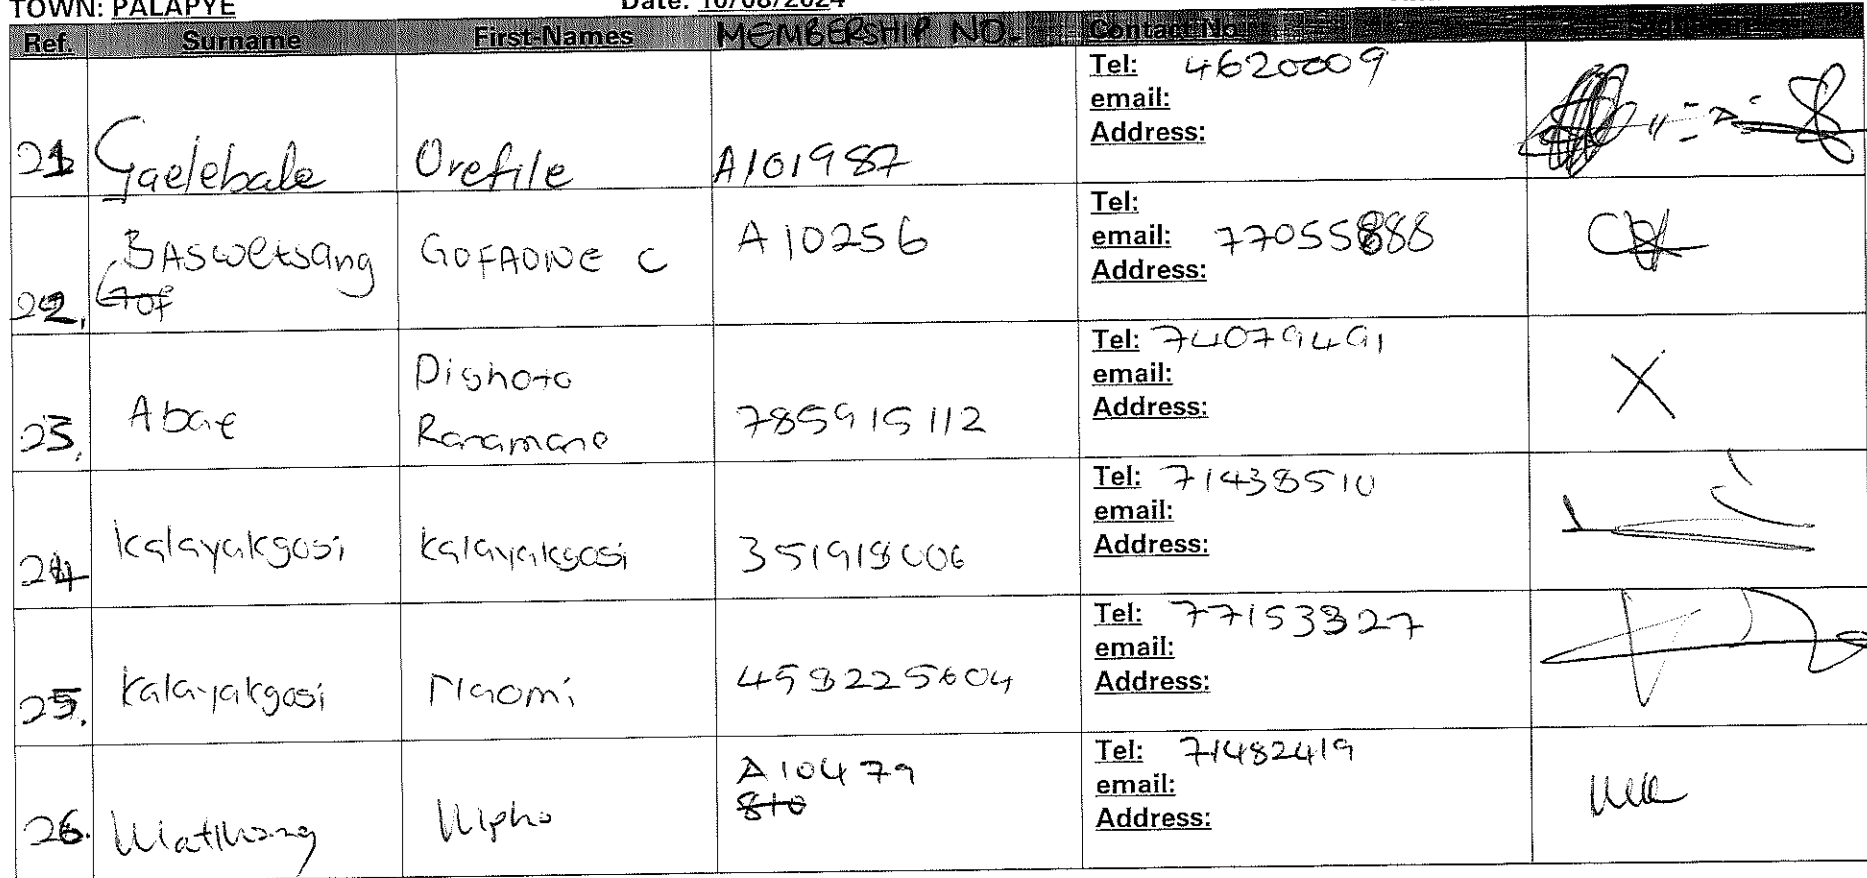 TOWN: PALAPYE Date: 10/08/2024
Ref. Surname First-Names MEMBERSHIP NO. Contact No.
21 Gaelebale Orefile A101987 Tel: 4620009
email:
Address:
22. BASWEtsang GOFAONE C A 10256 Tel:
Gof email: 77055888
Address:
23. Abae Dighoto Ranamane 785915112 Tel: 74079491
email:
Address:
X
24 Kalayakgosi Kalayakgosi 351918006 Tel: 71438510
email:
Address:
25. Kalayakgosi Naomi 458225604 Tel: 77153327
email:
Address:
26. Mpho A10479 Tel: 71482419
810 email:
Address: